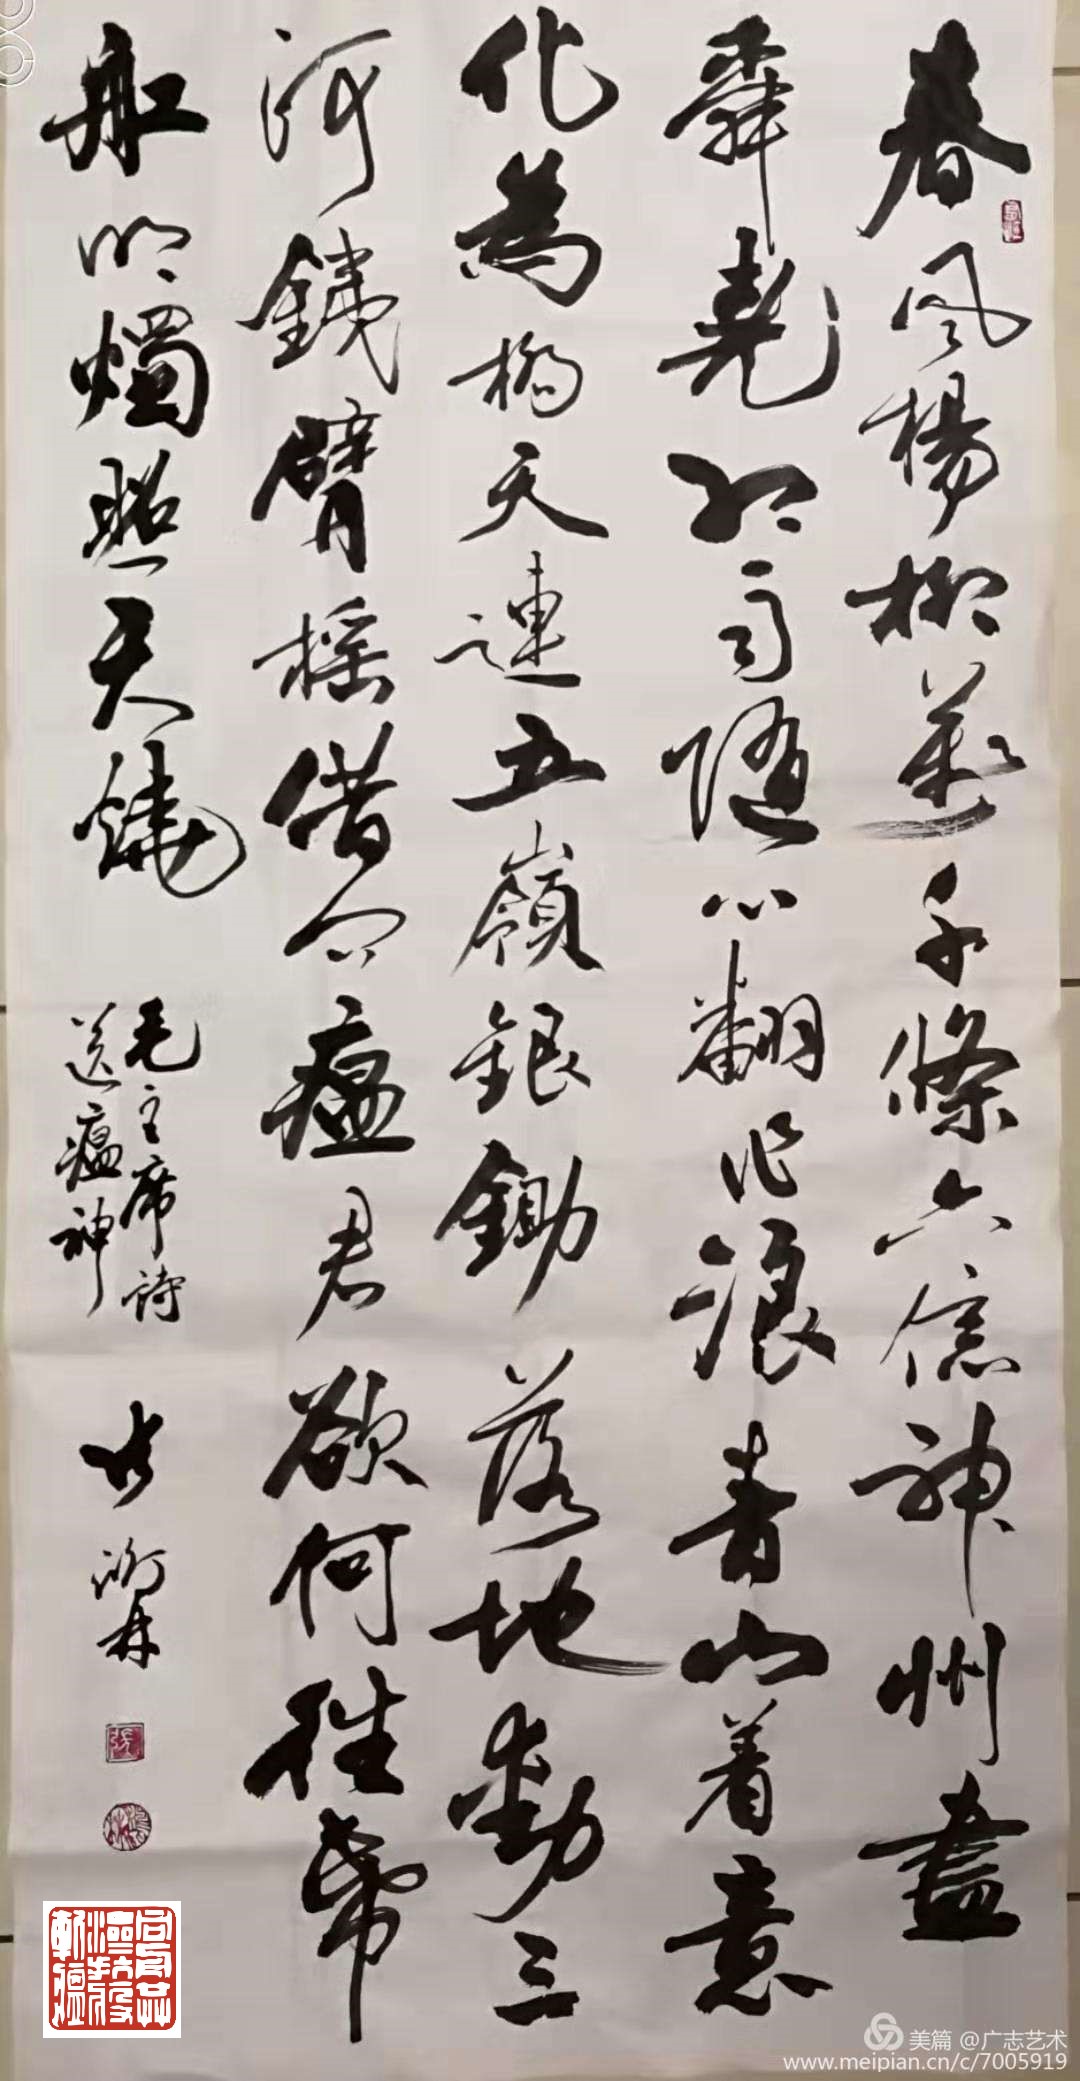 春風楊柳萬千條六億神州盡
舜堯紅雨隨心翻作浪青山着意
化為橋天連五嶺銀鋤落地動三
河鐵臂搖借问瘟君欲何往帋
船明燭照天燒
毛主席詩
送瘟神
張
美篇 @广志艺术
www.meipian.cn/c/7005919